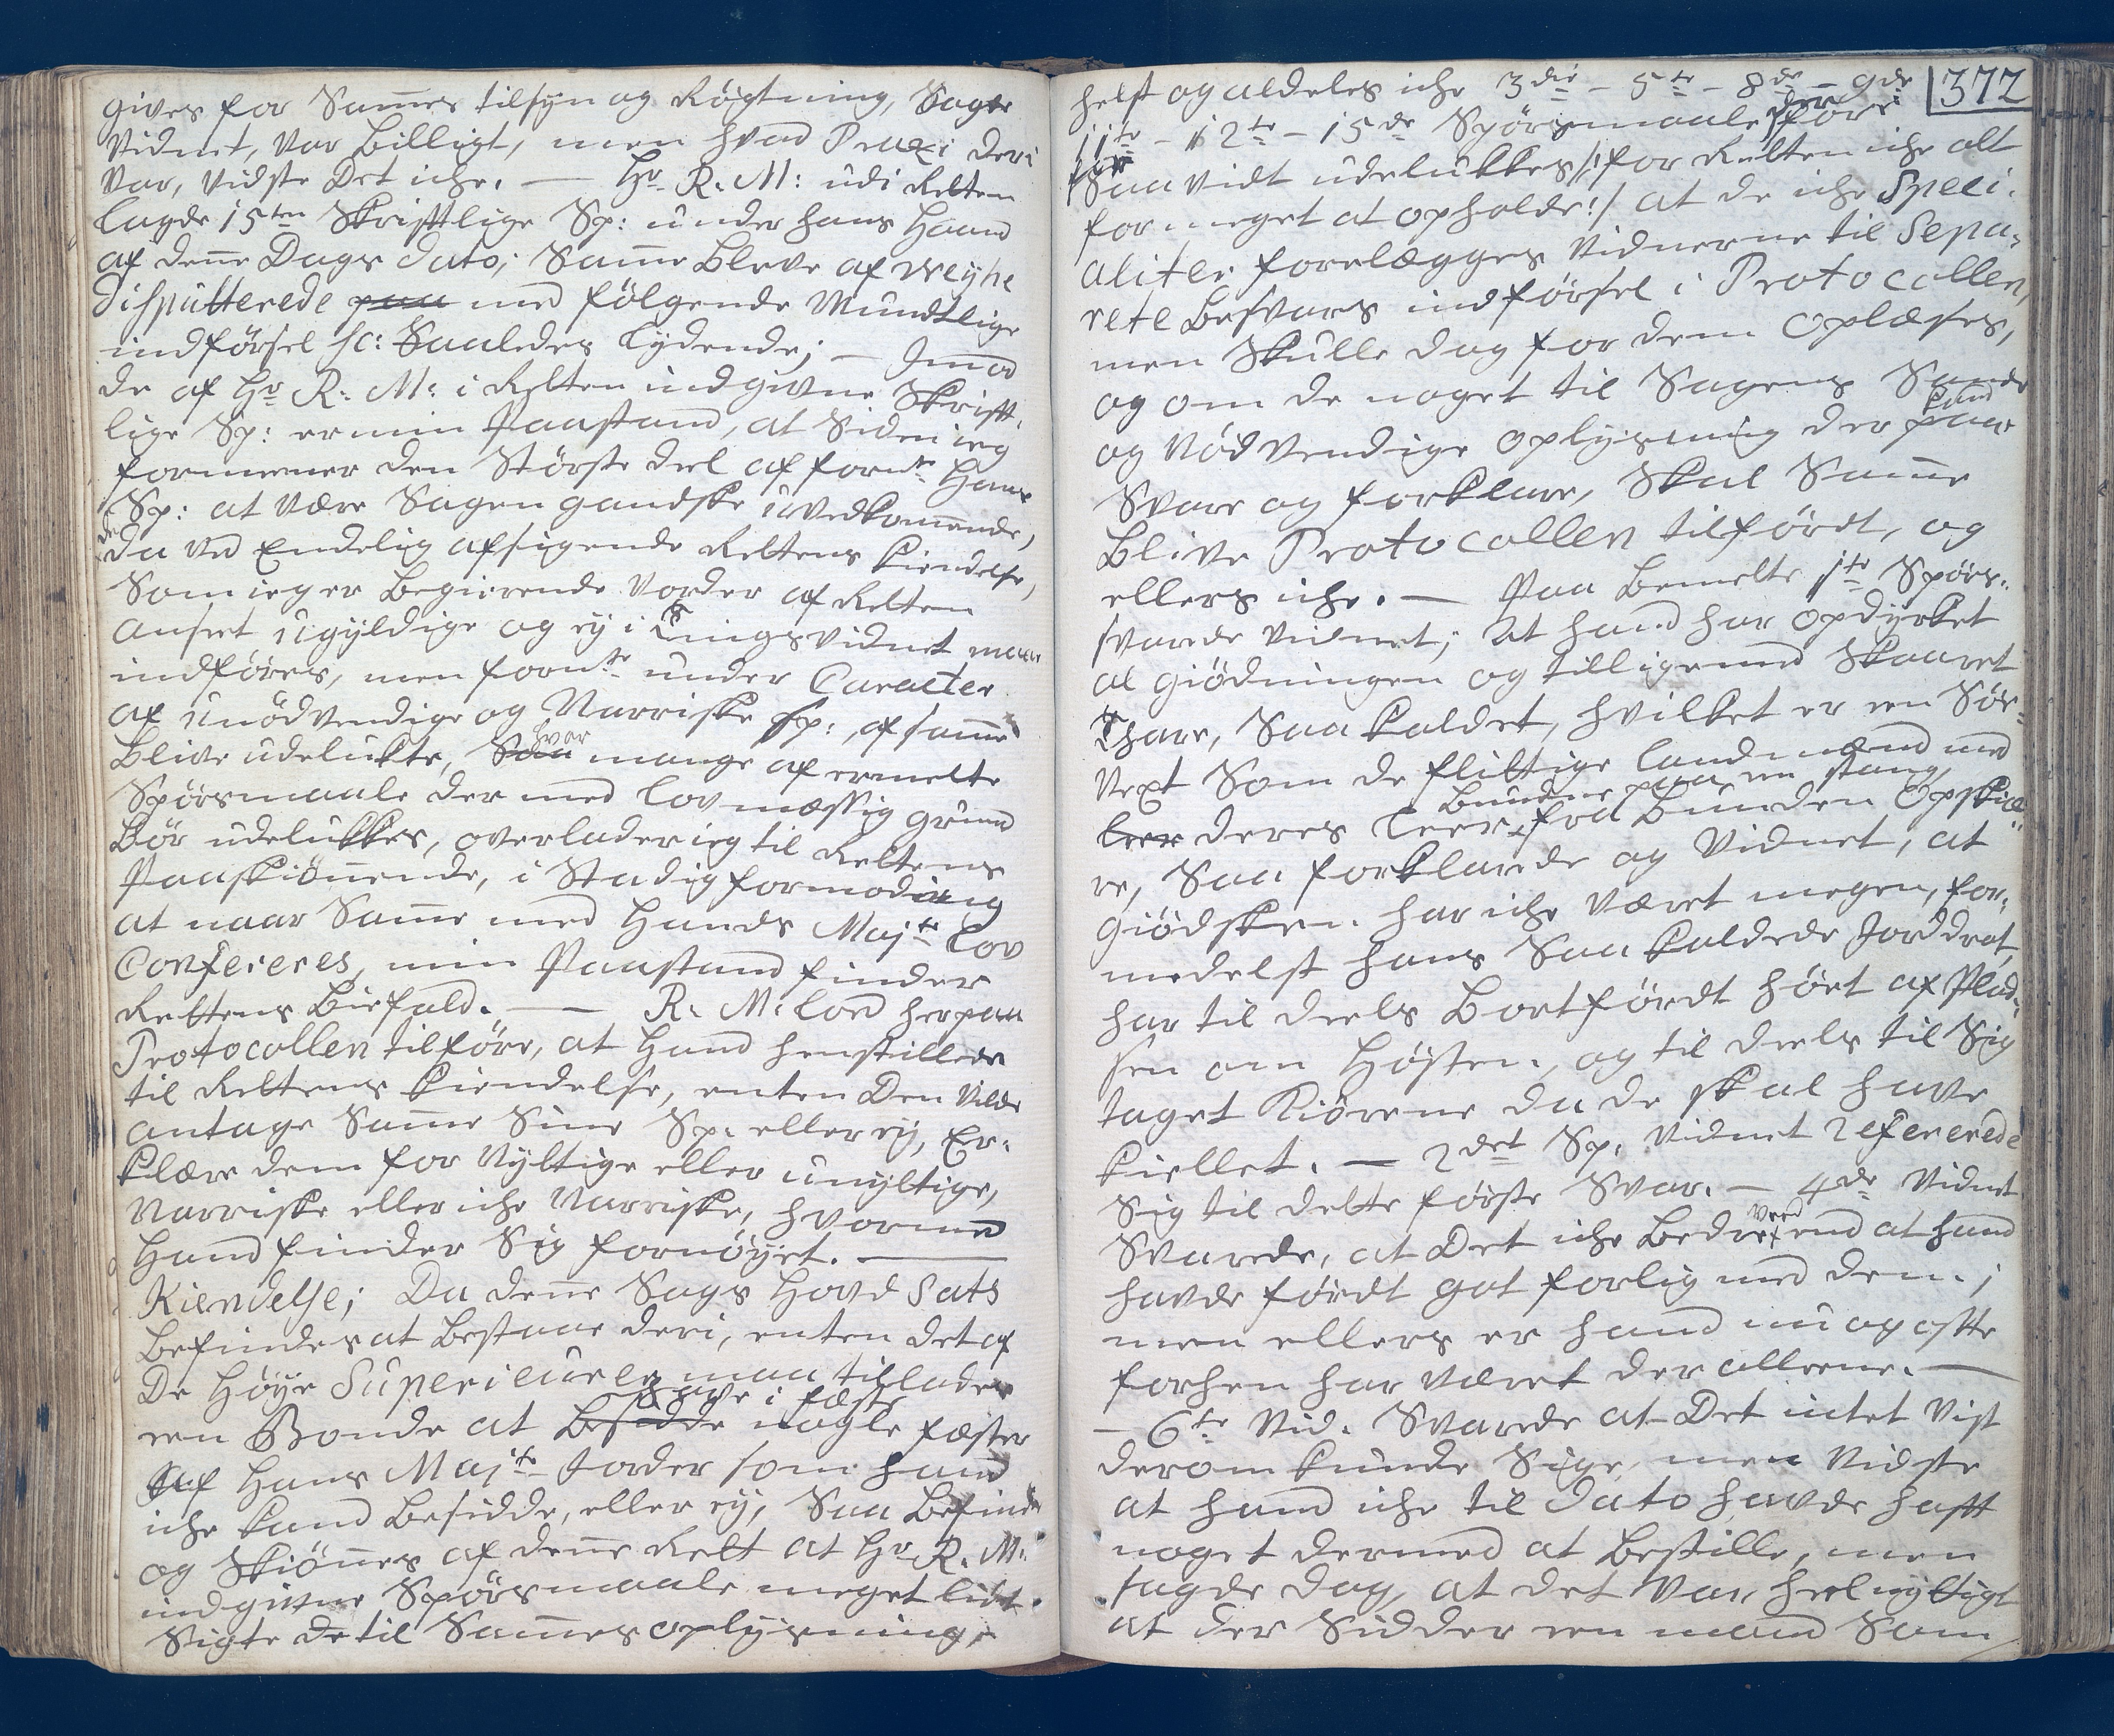 gives for Sam̄es tilsyn og Røgtning, Sagde
Vidnet, var billigt, men hvad Praxi deri
var, vidste det iche. — Hr. R. M: udi Retten
lagde 15ten Skrifftlige Sp: under hans Haand
af den̄e Dags dato; Sam̄e bleve af Weyhe
disputterede paa med følgende Mundtlige
indførsel sc: Saaledes lydende; — Imod
de af Hr. R. M: i Retten indgivne Skrifft-
lige Sp: er min Paastand, at Siden ieg
formener den Største deel af formte Hans
Sp: at være Sagen gandske uvedkom̄ende,
de da ved Endelig afsigende Rettens Kiendelse,
Som ieg er begierende vorder af Retten
anseet ugyldige og ey i Tingsvidnet maa
indføres, men formte under Caracter
af unødvendige og Narriske Sp: af sam̄e
blive udelukte, Saa hvor mange af ermelte
Spørsmaale der med lovmæssig grund
bør udelukkes, overlader ieg til Rettens
Paaskiøn̄ende, i Stadig formodning
at naar Sam̄e med Hands Majts Lov
Confereres, min Paastand finder
Rettens biefald. — R. M: lod herpaa
Protocollen tilføre, at Hand henstillede
til Rettens Kiendelse, enten Den vilde
antage Sam̄e Sine Sp: eller ey, Er-
klære dem for Nyttige eller unyttige,
Narriske eller iche Narriske, hvormed
Hand finder Sig fornøyet. —
Kiendelse; Da den̄e Sags Hovd Sats
befindes at bestaae deri, enten det af
De Høye Superieurer maa tillades
een Bonde at besidde have i fæste nogle fæster
af Hans Majts Jorder som hand
iche kand besidde, eller ey, Saa befindes
og Skiøn̄es af den̄e Rett at Hr. R. M:
indgivne Spørsmaale meget lidt
Sigte de til Sam̄es oplysning,
372
helst og aldeles iche 3die – 5te – 8de – 9de
11te – 12te – 15de Spørsmaale, der for
Saavidt udelukkes /: for Retten iche alt
for meget at opholde :/ at de iche Speci-
aliter forelægges Vidnerne til Sepa-
rete besvars indførsel i Protocollen,
men Skulle dog for dem oplæses,
og om de noget til Sagens Sande
og Nødvendige oplysning der paa kand
Svare og forklare, Skal Sam̄e
blive Protocollen tilførdt, og
ellers iche. — Paa bemelte 1te Spørs:
svarede Vidnet; At hand har opdyrket
al giødningen og tilligemed Skaaret
Thare, Saa kaldet, hvilket er een Søe-
vext Som de flittige landmænd med
leer deres leer bundne paa en stang, fra bunden opskie-
re, Saa forklarede og Vidnet, at
giødsken har iche været megen, for-
medelst hans Saa kaldede Jorddrot
har til deels bortførdt høet af Plad-
sen om Høsten, og til deels til Sig
taget Kiørene da de skal have
kiellet. — 2det Sp: Vidnet refererede
Sig til dette første Svar. — 4de Vidnet
Svarede, at Det iche bedre veed end at hand
havde førdt got forlig med dem;
men ellers er hand nu og offte
forhen har været der alleene. —
— 6te Vid. Svarede at Det intet vist
derom kunde Sige, men vidste
at hand iche til dato havde hafft
noget dermed at bestille, men
sagde dog, at det var heel nyttigt
at der Sidder een mand Som